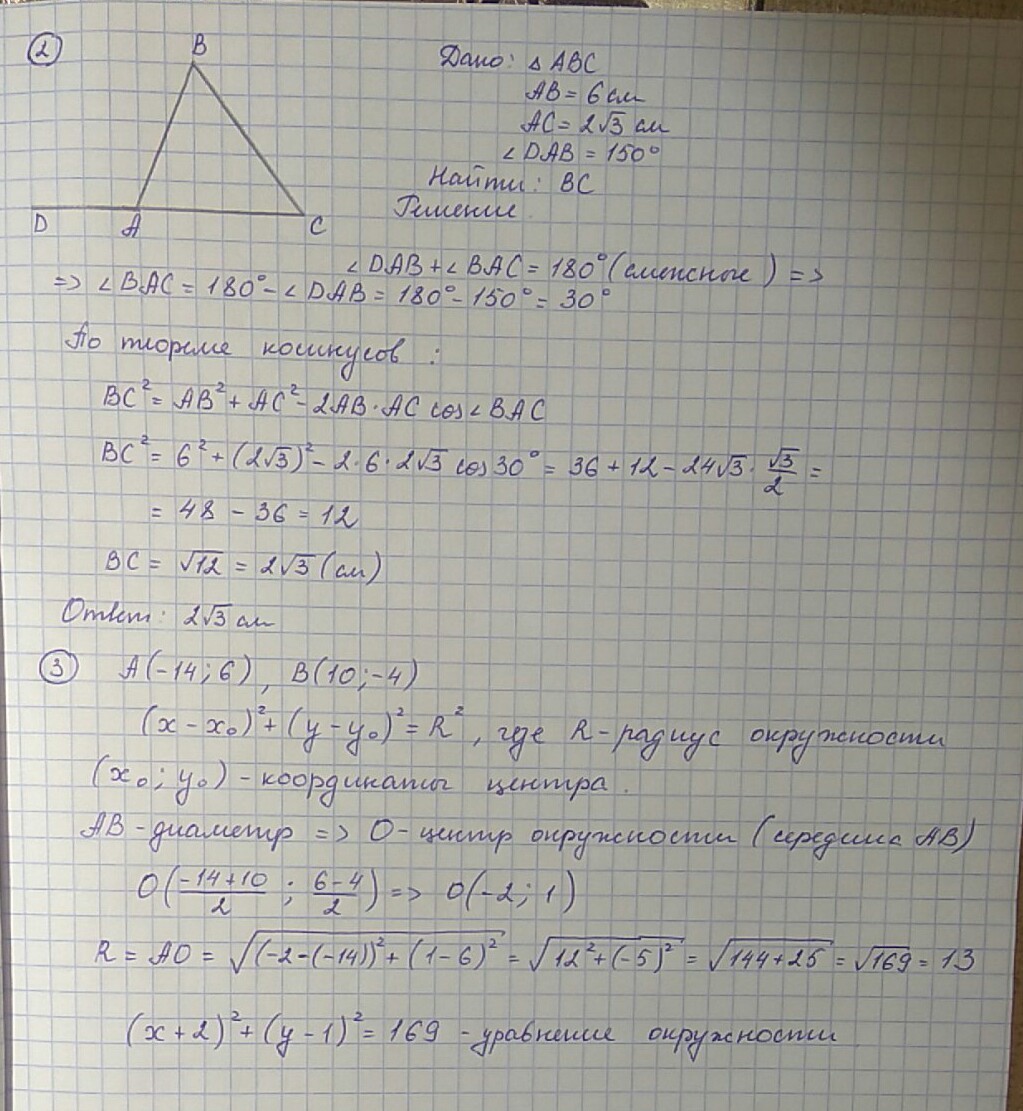 2
B
D
A
C
Дано: △ABC
AB = 6 см
AC = 2√3 см
∠DAB = 150°
Найти: BC
Решение.
∠DAB + ∠BAC = 180° (смежные) =>
=> ∠BAC = 180° - ∠DAB = 180° - 150° = 30°
По теореме косинусов :
BC² = AB² + AC² - 2AB · AC cos∠BAC
BC² = 6² + (2√3)² - 2·6·2√3 cos30° = 36 + 12 - 24√3 · √3/2 =
= 48 - 36 = 12
BC = √12 = 2√3 (см)
Ответ: 2√3 см
3 A(-14; 6), B(10; -4)
(x - x₀)² + (y - y₀)² = R², где R - радиус окружности
(x₀; y₀) - координаты центра.
AB - диаметр => O - центр окружности (середина AB)
O((-14+10)/2 ; (6-4)/2) => O(-2; 1)
R = AO = √((-2-(-14))² + (1-6)²) = √(12² + (-5)²) = √(144+25) = √169 = 13
(x + 2)² + (y - 1)² = 169 - уравнение окружности